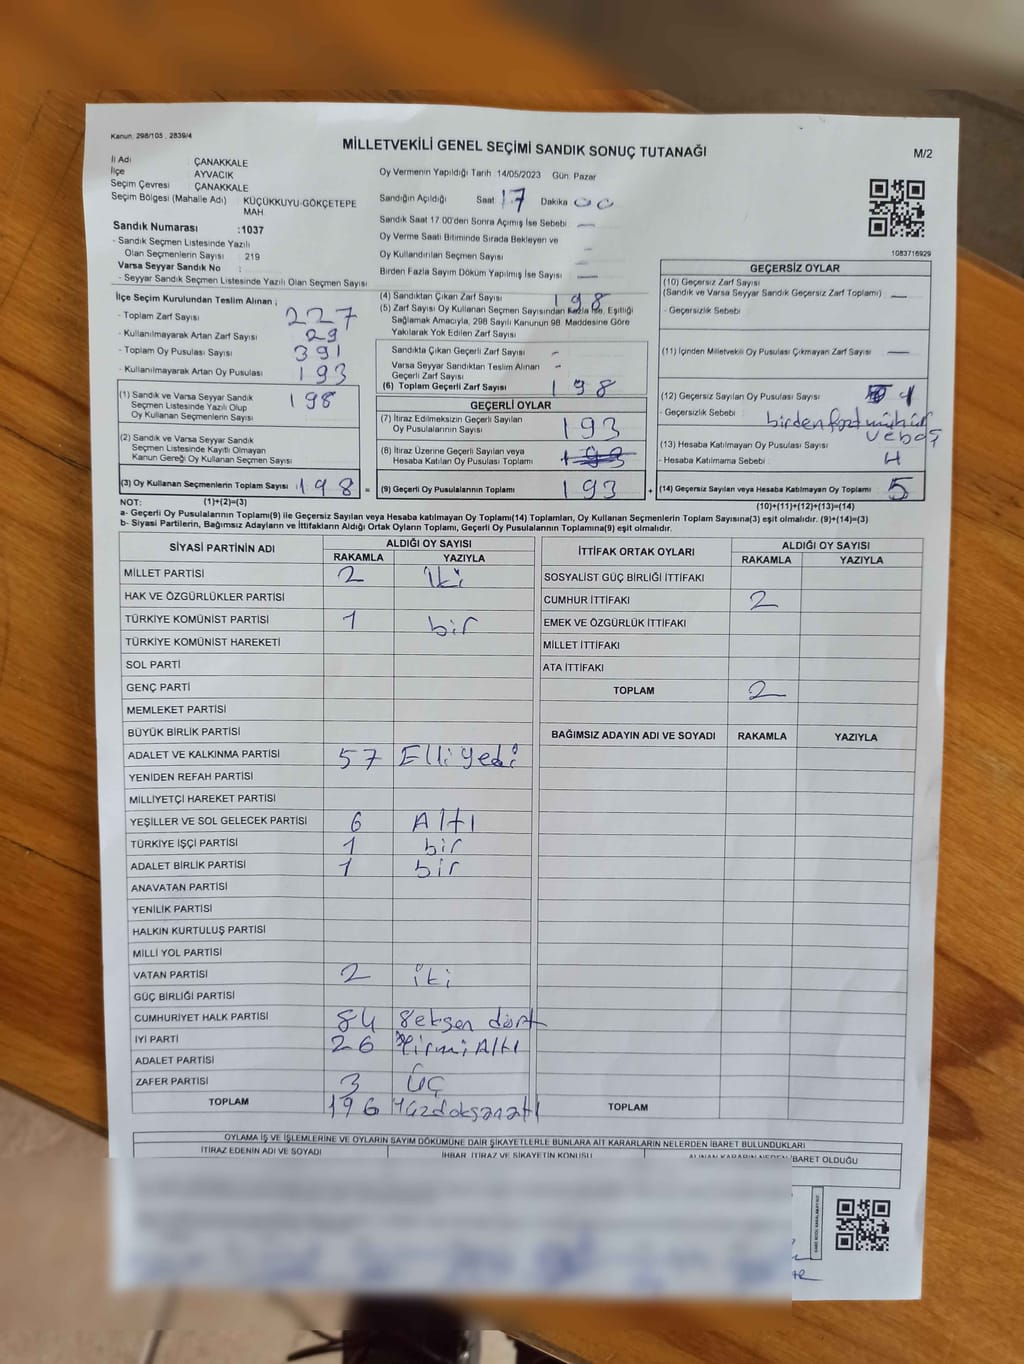 Kanun. 298/105 , 2839/4
MİLLETVEKİLİ GENEL SEÇİMİ SANDIK SONUÇ TUTANAĞI
M/2
İl Adı ÇANAKKALE
İlçe AYVACIK
Seçim Çevresi ÇANAKKALE
Seçim Bölgesi (Mahalle Adı) KÜÇÜKKUYU-GÖKÇETEPE MAH
Sandık Numarası :1037
- Sandık Seçmen Listesinde Yazılı
Olan Seçmenlerin Sayısı 219
Varsa Seyyar Sandık No :
- Seyyar Sandık Seçmen Listesinde Yazılı Olan Seçmen Sayısı
Oy Vermenin Yapıldığı Tarih 14/05/2023 Gün: Pazar
Sandığın Açıldığı Saat 17 Dakika 00
Sandık Saat 17.00'den Sonra Açımış İse Sebebi —
Oy Verme Saati Bitiminde Sırada Bekleyen ve
Oy Kullandırılan Seçmen Sayısı —
Birden Fazla Sayım Döküm Yapılmış İse Sayısı —
1083716929
İlçe Seçim Kurulundan Teslim Alınan ;
- Toplam Zarf Sayısı 227
- Kullanılmayarak Artan Zarf Sayısı 29
- Toplam Oy Pusulası Sayısı 391
- Kullanılmayarak Artan Oy Pusulası 193
(1) Sandık ve Varsa Seyyar Sandık
Seçmen Listesinde Yazılı Olup
Oy Kullanan Seçmenlerin Sayısı 198
(2) Sandık ve Varsa Seyyar Sandık
Seçmen Listesinde Kayıtlı Olmayan
Kanun Gereği Oy Kullanan Seçmen Sayısı
(3) Oy Kullanan Seçmenlerin Toplam Sayısı 198 =
(4) Sandıktan Çıkan Zarf Sayısı 198
(5) Zarf Sayısı Oy Kullanan Seçmen Sayısından Fazla İse, Eşitliği
Sağlamak Amacıyla, 298 Sayılı Kanunun 98. Maddesine Göre
Yakılarak Yok Edilen Zarf Sayısı
Sandıkta Çıkan Geçerli Zarf Sayısı -
Varsa Seyyar Sandıktan Teslim Alınan
Geçerli Zarf Sayısı -
(6) Toplam Geçerli Zarf Sayısı 198
GEÇERLİ OYLAR
(7) İtiraz Edilmeksizin Geçerli Sayılan
Oy Pusulalarının Sayısı 193
(8) İtiraz Üzerine Geçerli Sayılan veya
Hesaba Katılan Oy Pusulası Toplamı
(9) Geçerli Oy Pusulalarının Toplamı 193 +
GEÇERSİZ OYLAR
(10) Geçersiz Zarf Sayısı
(Sandık ve Varsa Seyyar Sandık Geçersiz Zarf Toplamı) —
- Geçersizlik Sebebi
(11) İçinden Milletvekili Oy Pusulası Çıkmayan Zarf Sayısı —
(12) Geçersiz Sayılan Oy Pusulası Sayısı 1
- Geçersizlik Sebebi :
(13) Hesaba Katılmayan Oy Pusulası Sayısı
- Hesaba Katılmama Sebebi 4
(14) Geçersiz Sayılan veya Hesaba Katılmayan Oy Toplamı 5
NOT: (1)+(2)=(3)
(10)+(11)+(12)+(13)=(14)
a- Geçerli Oy Pusulalarının Toplamı(9) ile Geçersiz Sayılan veya Hesaba katılmayan Oy Toplamı(14) Toplamları, Oy Kullanan Seçmenlerin Toplam Sayısına(3) eşit olmalıdır. (9)+(14)=(3)
b- Siyasi Partilerin, Bağımsız Adayların ve İttifakların Aldığı Ortak Oyların Toplamı, Geçerli Oy Pusulalarının Toplamına(9) eşit olmalıdır.
SİYASİ PARTİNİN ADI ALDIĞI OY SAYISI
RAKAMLA YAZIYLA
MİLLET PARTİSİ 2 iki
HAK VE ÖZGÜRLÜKLER PARTİSİ
TÜRKİYE KOMÜNİST PARTİSİ 1 bir
TÜRKİYE KOMÜNİST HAREKETİ
SOL PARTİ
GENÇ PARTİ
MEMLEKET PARTİSİ
BÜYÜK BİRLİK PARTİSİ
ADALET VE KALKINMA PARTİSİ 57 Elli yedi
YENİDEN REFAH PARTİSİ
MİLLİYETÇİ HAREKET PARTİSİ
YEŞİLLER VE SOL GELECEK PARTİSİ 6 Altı
TÜRKİYE İŞÇİ PARTİSİ 1 bir
ADALET BİRLİK PARTİSİ 1 bir
ANAVATAN PARTİSİ
YENİLİK PARTİSİ
HALKIN KURTULUŞ PARTİSİ
MİLLİ YOL PARTİSİ
VATAN PARTİSİ 2 iki
GÜÇ BİRLİĞİ PARTİSİ
CUMHURİYET HALK PARTİSİ 84 Seksen dört
İYİ PARTİ 26 Yirmi Altı
ADALET PARTİSİ
ZAFER PARTİSİ 3 Üç
TOPLAM 196 Yüzdoksanaltı
İTTİFAK ORTAK OYLARI ALDIĞI OY SAYISI
RAKAMLA YAZIYLA
SOSYALİST GÜÇ BİRLİĞİ İTTİFAKI
CUMHUR İTTİFAKI 2
EMEK VE ÖZGÜRLÜK İTTİFAKI
MİLLET İTTİFAKI
ATA İTTİFAKI
TOPLAM 2
BAĞIMSIZ ADAYIN ADI VE SOYADI RAKAMLA YAZIYLA
TOPLAM
OYLAMA İŞ VE İŞLEMLERİNE VE OYLARIN SAYIM DÖKÜMÜNE DAİR ŞİKAYETLERLE BUNLARA AİT KARARLARIN NELERDEN İBARET BULUNDUKLARI
İTİRAZ EDENİN ADI VE SOYADI İHBAR, İTİRAZ VE ŞİKAYETİN KONUSU ALINAN KARARIN NEDEN İBARET OLDUĞU